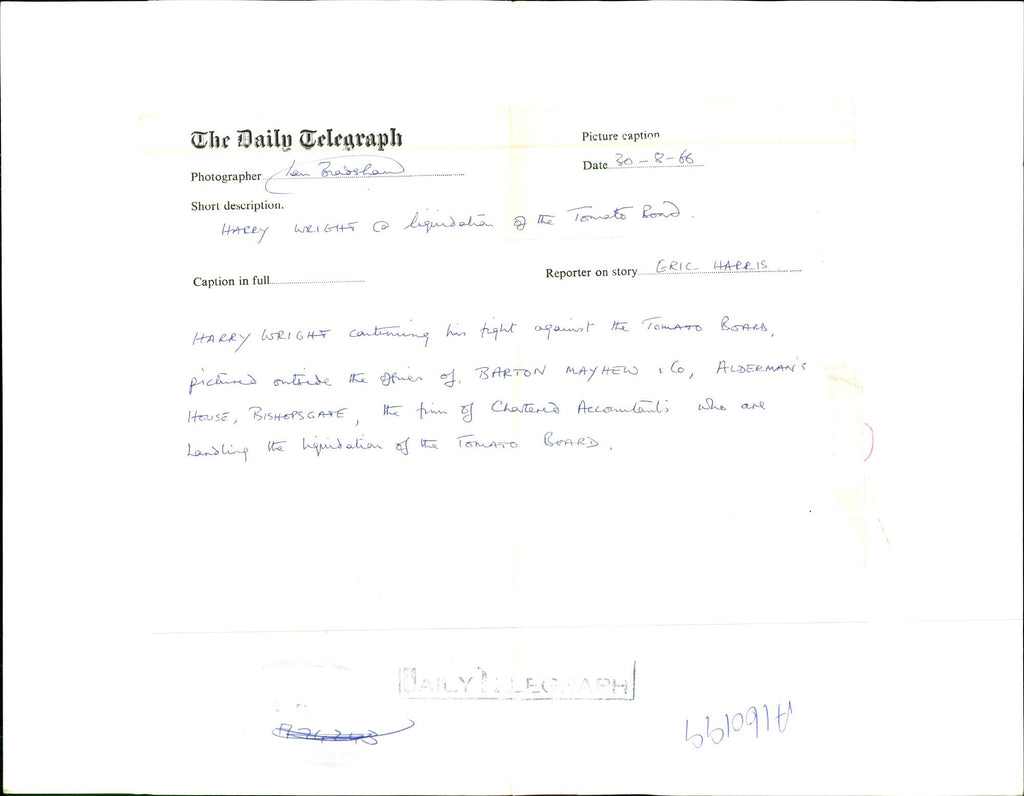 The Daily Telegraph
Picture caption
Photographer Ian Bradshaw
Date 30-8-66
Short description.
HARRY WRIGHT @ liquidation of the Tomato Board.
Caption in full
Reporter on story ERIC HARRIS
HARRY WRIGHT continuing his fight against the TOMATO BOARD,
pictured outside the offices of, BARTON MAYHEW & Co, ALDERMAN'S
HOUSE, BISHOPSGATE, the firm of Chartered Accountants who are
handling the liquidation of the TOMATO BOARD.
DAILY TELEGRAPH